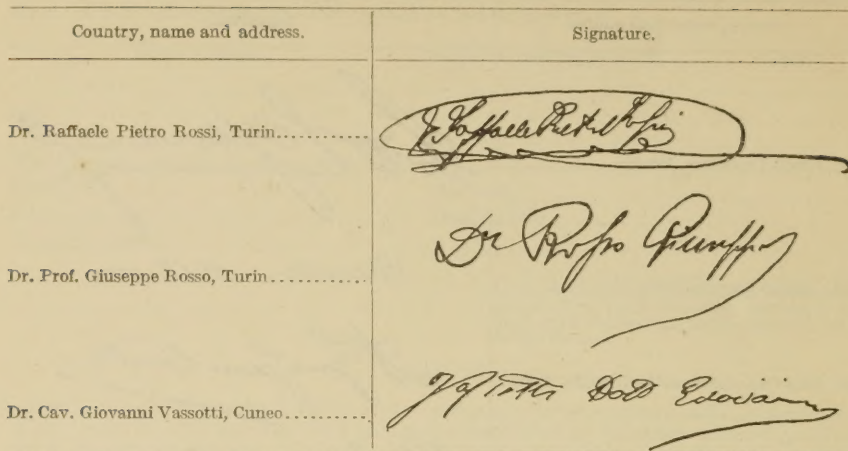 Country, name and address.
Signature.
Dr. Raffaele Pietro Rossi, Turin............
Raffaele Pietro Rossi
Dr. Prof. Giuseppe Rosso, Turin............
Dr Rosso Giuseppe
Dr. Cav. Giovanni Vassotti, Cuneo..........
Dott